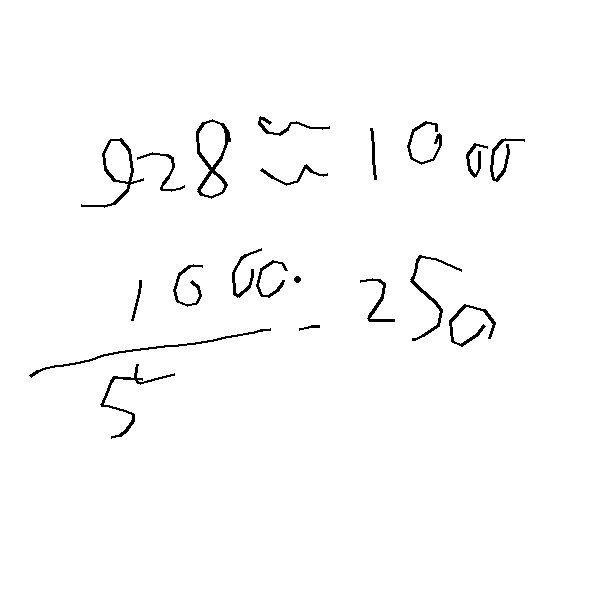 928 ≈ 1000
1000 / 5 = 250